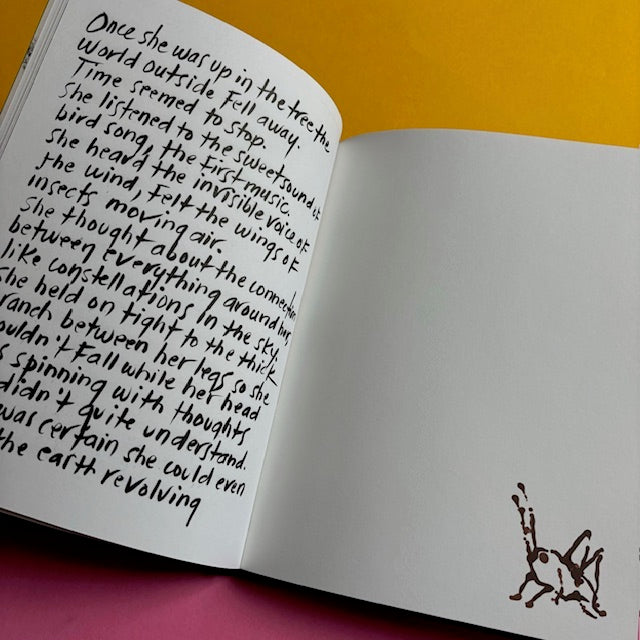 Once she was up in the tree the
world outside fell away.
Time seemed to stop.
She listened to the sweet sound of
bird song, the first music.
She heard the invisible voice of
the wind, felt the wings of
insects moving air.
She thought about the connection
between everything around her,
like constellations in the sky.
she held on tight to the thick
ranch between her legs so she
ouldn't fall while her head
s spinning with thoughts
didn't quite understand.
was certain she could even
the earth revolving